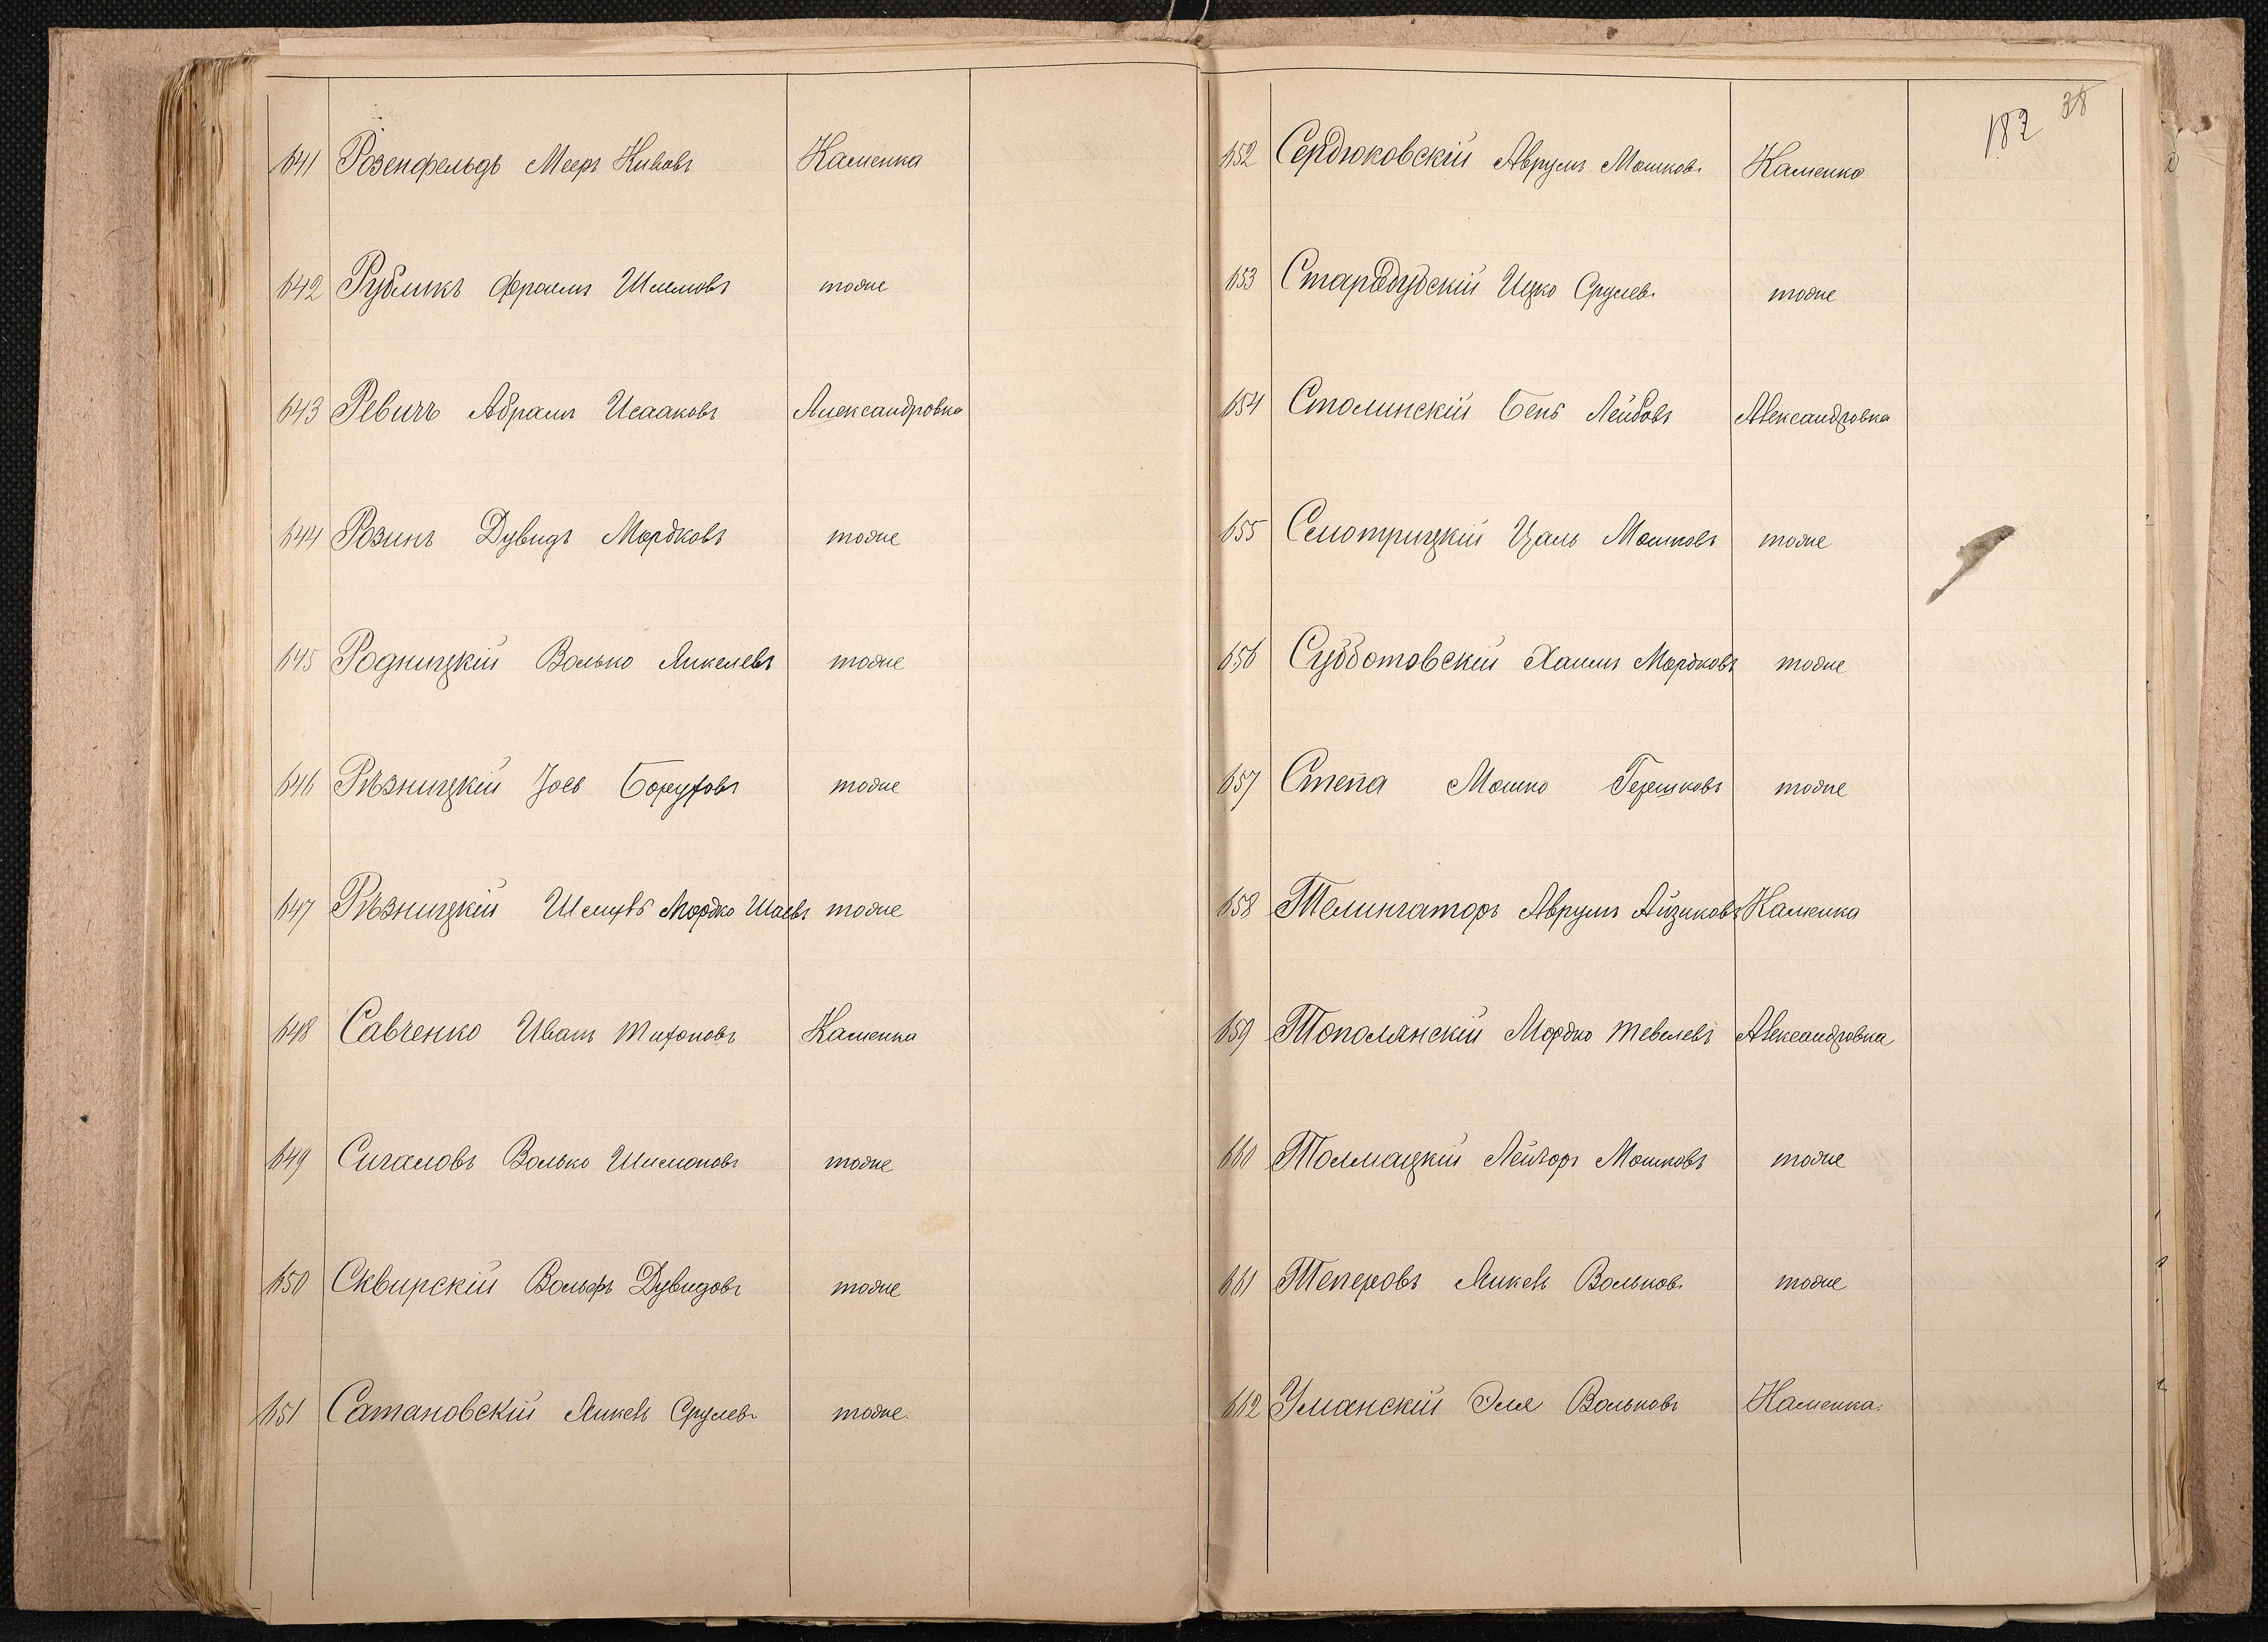 641 Розенфельдъ Мееръ Кивовъ Каменка
642 Рубликъ Фроимъ Шлемовъ тоже
643 Ревичъ Абрамъ Исааковъ Александровка
644 Розинъ Дувидъ Мордковъ тоже
645 Родницкій Волько Янкелевъ тоже
646 Рѣзницкій Іось Боруховъ тоже
647 Рѣзницкій Шмуль Мордко Шаевъ тоже
648 Савченко Иванъ Тихоновъ Каменка
649 Сигаловъ Волько Шимоновъ тоже
650 Сквирскій Вольфъ Дувидовъ тоже
651 Сатановскій Янкель Срулевъ тоже.
182 38
652 Сердюковскій Аврумъ Мошков. Каменка
653 Стародубскій Ицко Срулев. тоже
654 Столинскій Бень Лейбовъ Александровка
655 Смотрицкій Цаль Мошковъ тоже
656 Субботовскій Хаимъ Мордковъ тоже
657 Степа Мошко Гершковъ тоже
658 Телингаторъ Аврумъ Айзиковъ Каменка
659 Тополянскій Мордко Тевелевъ Александровка
660 Толмацкій Лейзоръ Мошковъ тоже
661 Теперовъ Янкель Вольков. тоже
662 Уманскій Эля Вольковъ Каменка.